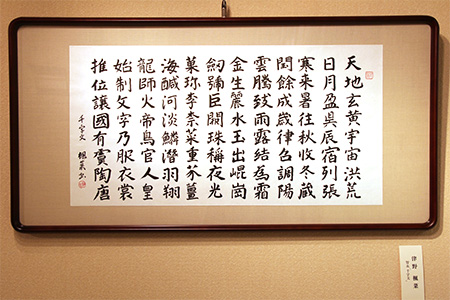 天地玄黄宇宙洪荒
日月盈昃辰宿列張
寒来暑往秋收冬蔵
閏餘成歳律呂調陽
雲騰致雨露結為霜
金生麗水玉出崐崗
劔號巨闕珠稱夜光
菓珍李柰菜重芥薑
海鹹河淡鱗潜羽翔
龍師火帝鳥官人皇
始制文字乃服衣裳
推位讓國有虞陶唐
千字文 楓菜書
津野 楓菜